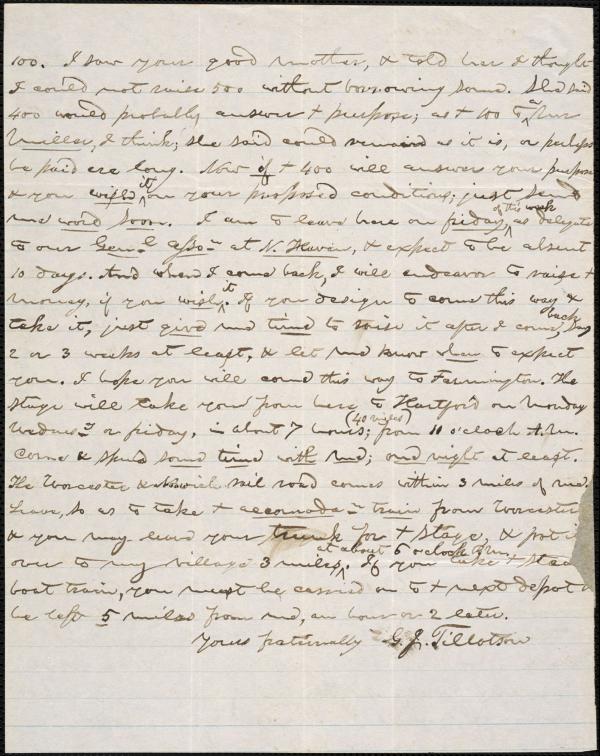 100. I saw your good mother, & told her I thought
I could not raise 500 without borrowing some. She said
400 would probably answer + purpose; as + 100 to a Mr
Miller, I think; she said could remain as it is, or perhaps
be paid ere long. Now if + 400 will answer your purpose
& you wish it on your proposed conditions, just send
me word soon. I am to leave here on friday of this week, as delegate
to our Genl. Asso- at N. Haven, & expect to be absent
10 days. And when I come back, I will endeavor to raise +
money, if you wish it. If you design to come this way &
take it, just give me time to raise it after I come back, say
2 or 3 weeks at least, & let me know when to expect
you. I hope you will come this way to Farmington. The
stage will take you from here to Hartford on Monday
Wednes- or friday, in about 7 hours; (40 miles) from 11 o'clock A.M.
Come & spend some time with me; one night at least.
The Worcester & Norwich rail road comes within 3 miles of me.
Leave, so as to take + accomoda- train from Worcester
& you may leave your trunk for + stage, & foot it
over to my village 3 miles, at about 6 o'clock P.M. If you take + steam
boat train, you must be carried on to + next depot &
be left 5 miles from me, an hour or 2 later.
Yours fraternally G. J. Tillotson